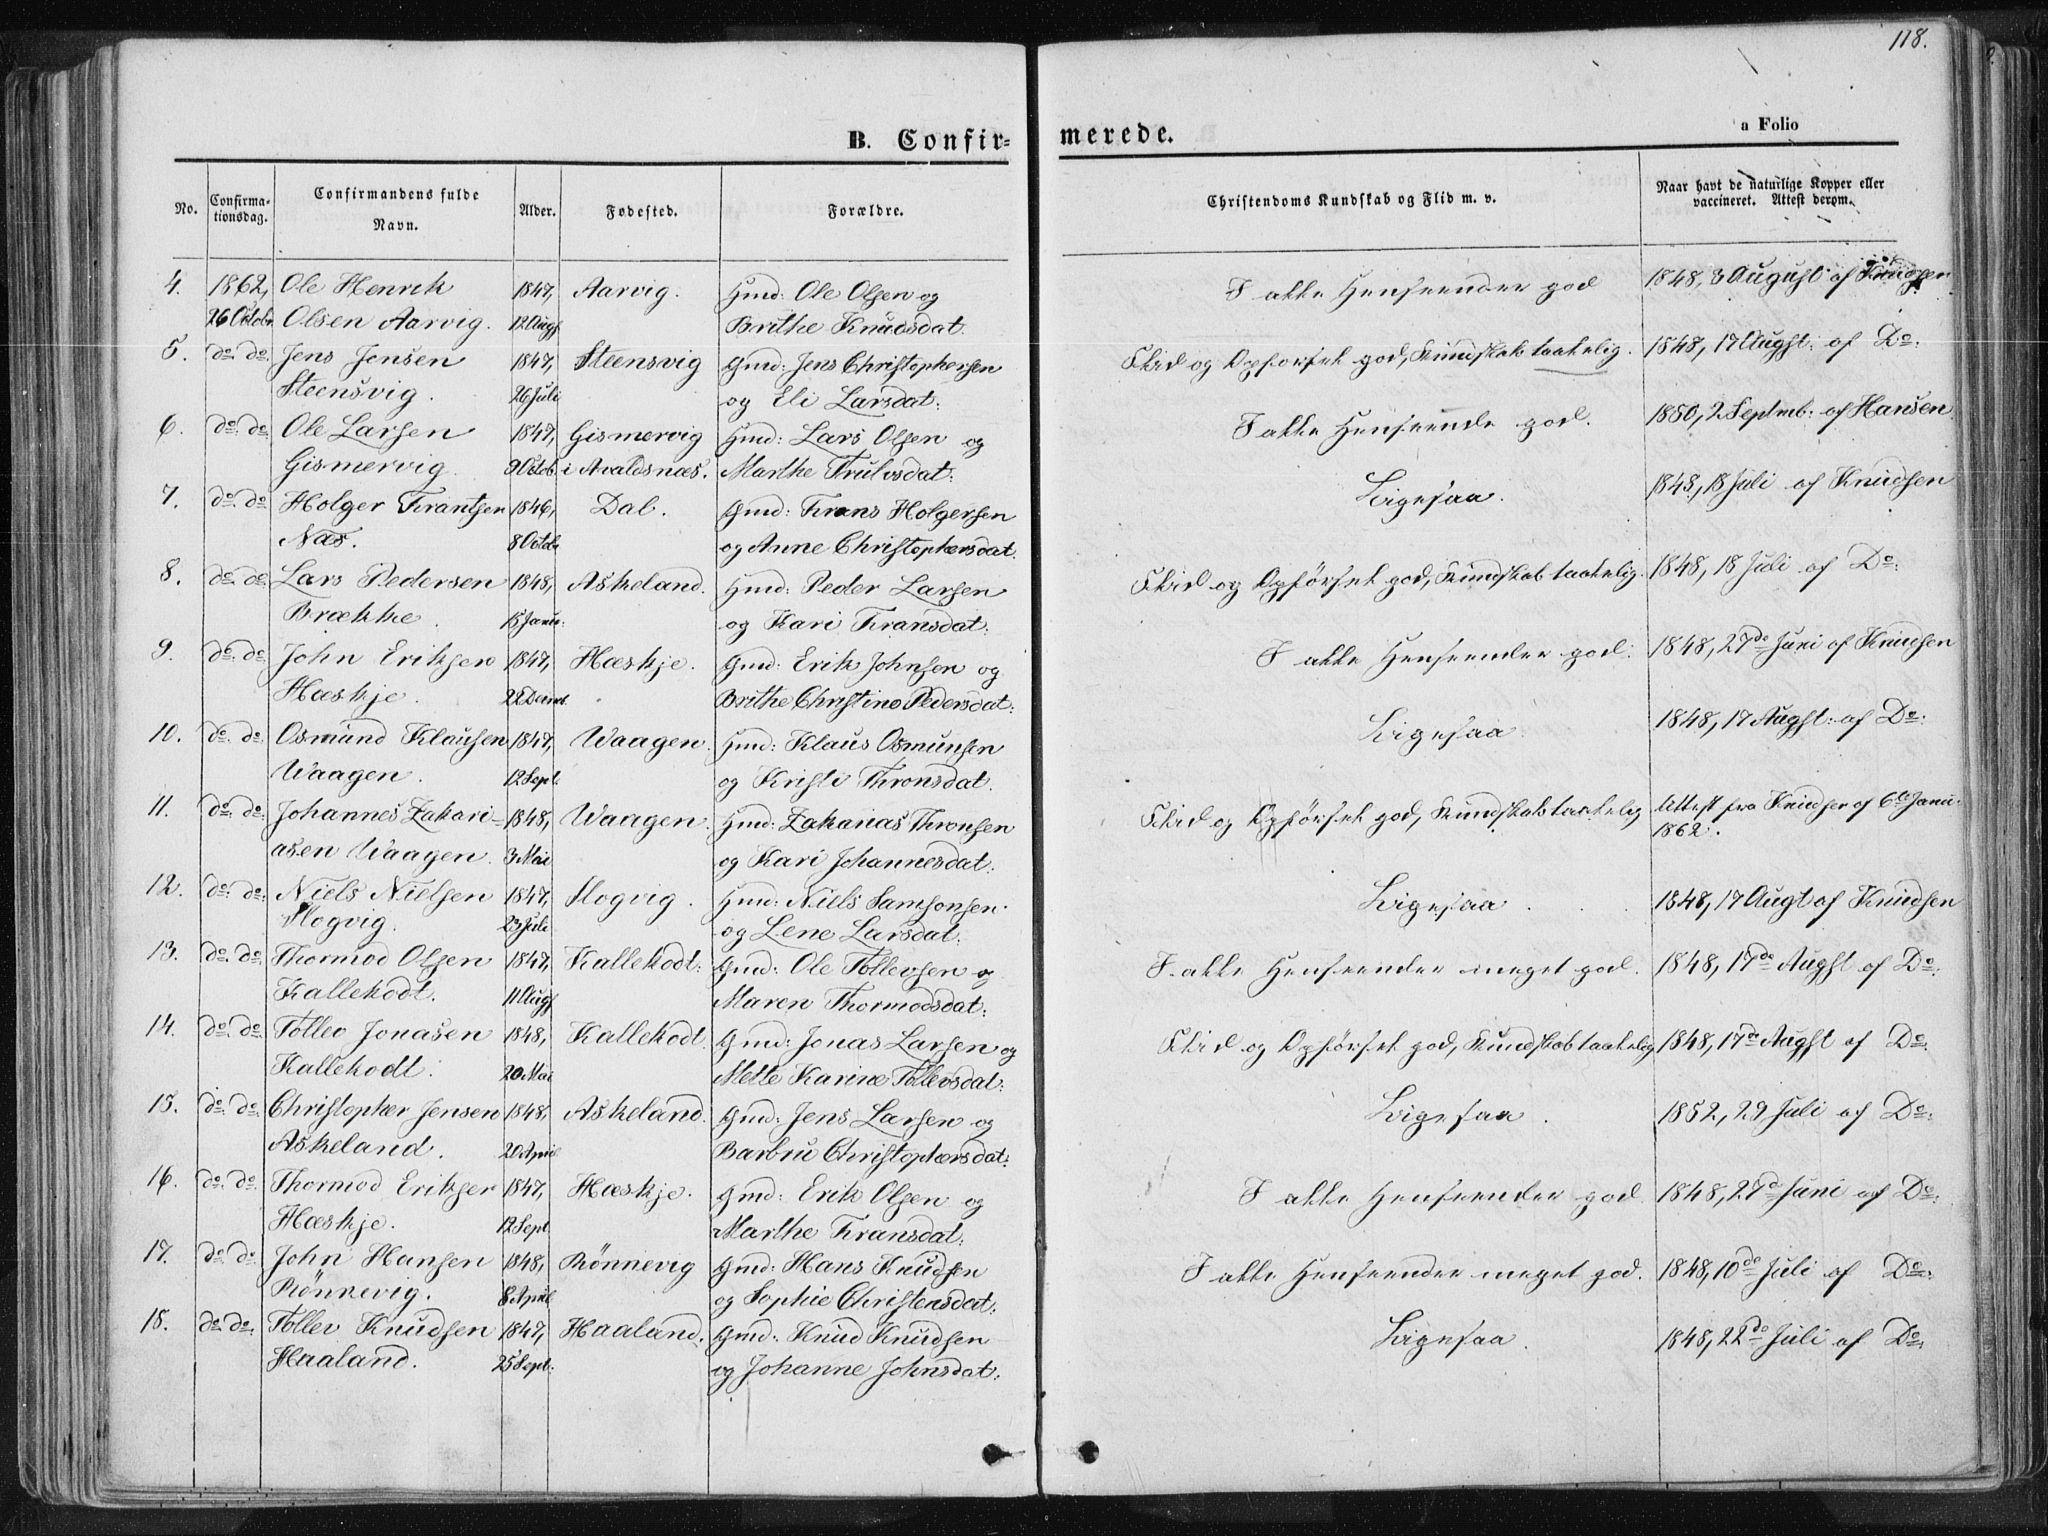 118.
B. Confir=
merede.
a Folio
No.
Confirma-
tionsdag.
Confirmandens fulde
Navn.
Alder.
Fødested.
Forældre.
Christendoms Kundskab og Flid m. v.
Naar havt de naturlige Kopper eller
vaccineret. Attest derom.
4. 1862, Ole Henrik 1847, Aarvig. Gmd: Ole Olsen og I alle Henseender god 1848, 3 August af Knudsen
26 Octobr. Olsen Aarvig. 12 Augs Brithe Knudsdat.
5. do. do. Jens Jensen 1847, Steensvig Gmd: Jens Christophersen Flid og Opførsel god, Kundskab taalelig. 1848, 17 Augst: af Do:
Steensvig. 26 Juli og Eli Larsdat:
6. do. do. Ole Larsen 1847, Gismervig Gmd: Lars Olsen og I alle Henseende god. 1850, 2 Septmb: af Hansen
Gismervig. 9 Octob. i Avaldsnæs. Marthe Trulvsdat:
7. do. do Holger Frantsen 1846, Dal. Gmd: Frans Holgersen Ligesaa. 1848, 18 Juli af Knudsen
Næs. 8 Octobr og Anne Christophersdat.
8. do. do. Lars Pedersen 1848, Askeland. Gmd: Peder Larsen Flid og Opførsel god, Kundskab taalelig. 1848, 18 Juli af Do:
Brække. 15 Janu: og Kari Fransdat:
9. do. do. John Eriksen 1847, Hæskje. Gmd: Erik Johnsen og I alle Henseender god. 1848, 27de Juni af Knudsen
Hæskje. 22 Decmb. Brithe Christine Pedersdat:
10. do. do. Osmund Klausen 1847, Waagen. Gmd: Klaus Osmunsen Ligesaa 1848, 17 Augst: af Do:
Waagen. 12 Sept. og Kristi Thronsdat.
11. do. do. Johannes Zakari- 1848, Waagen. Gmd: Zakarias Thronsen Flid og Opførsel god, Kundskab taalelig Attest fra Knudsen af 6te Janu:
asen Waagen. 3 Mai og Kari Johannesdat: 1862.
12. do. do: Niels Nielsen 1847, Slogvig. Gmd: Niels Samsonsen. Ligesaa. 1848, 17 Augt af Knudsen
Slogvig. 23 Juli og Lene Larsdat:
13. do. do. Thormod Olsen 1847, Kallekodt: Gmd: Ole Tollevsen og I alle Henseender meget god. 1848, 17de Augst af Do:
Kallekodt. 11 Augs Maren Thormodsdat:
14. do. do. Tollev Jonasen 1848, Kallekodt. Gmd: Jonas Larsen og Flid og Opførsel god, Kundskab taalelig 1848, 17de Augst af Do:
Kallekodt. 20 Mai Mette Karine Tollevsdat:
15. do. do. Christopher Jensen 1848, Askeland. Gmd: Jens Larsen og Ligesaa. 1852, 29 Juli af Do:
Askeland. 20 April Barbru Christophersdat:
16. do. do. Thormod Eriksen 1847, Hæskje. Gmd: Erik Olsen og I alle Henseender god. 1848, 27de Juni af Do:
Hæskje. 12 Sept. Marthe Fransdat:
17. do. do. John Hansen 1848, Rönnevig Gmd: Hans Knudsen I alle Henseender meget god. 1848, 10de Juli af Do:
Rönnevig. 8 April og Sophie Christensdat:
18. do. do. Tollev Knudsen 1847, Haaland. Gmd: Knud Knudsen Ligesaa. 1848, 22de Juli af Do:
Haaland. 25 Sept. og Johanne Johnsdat: